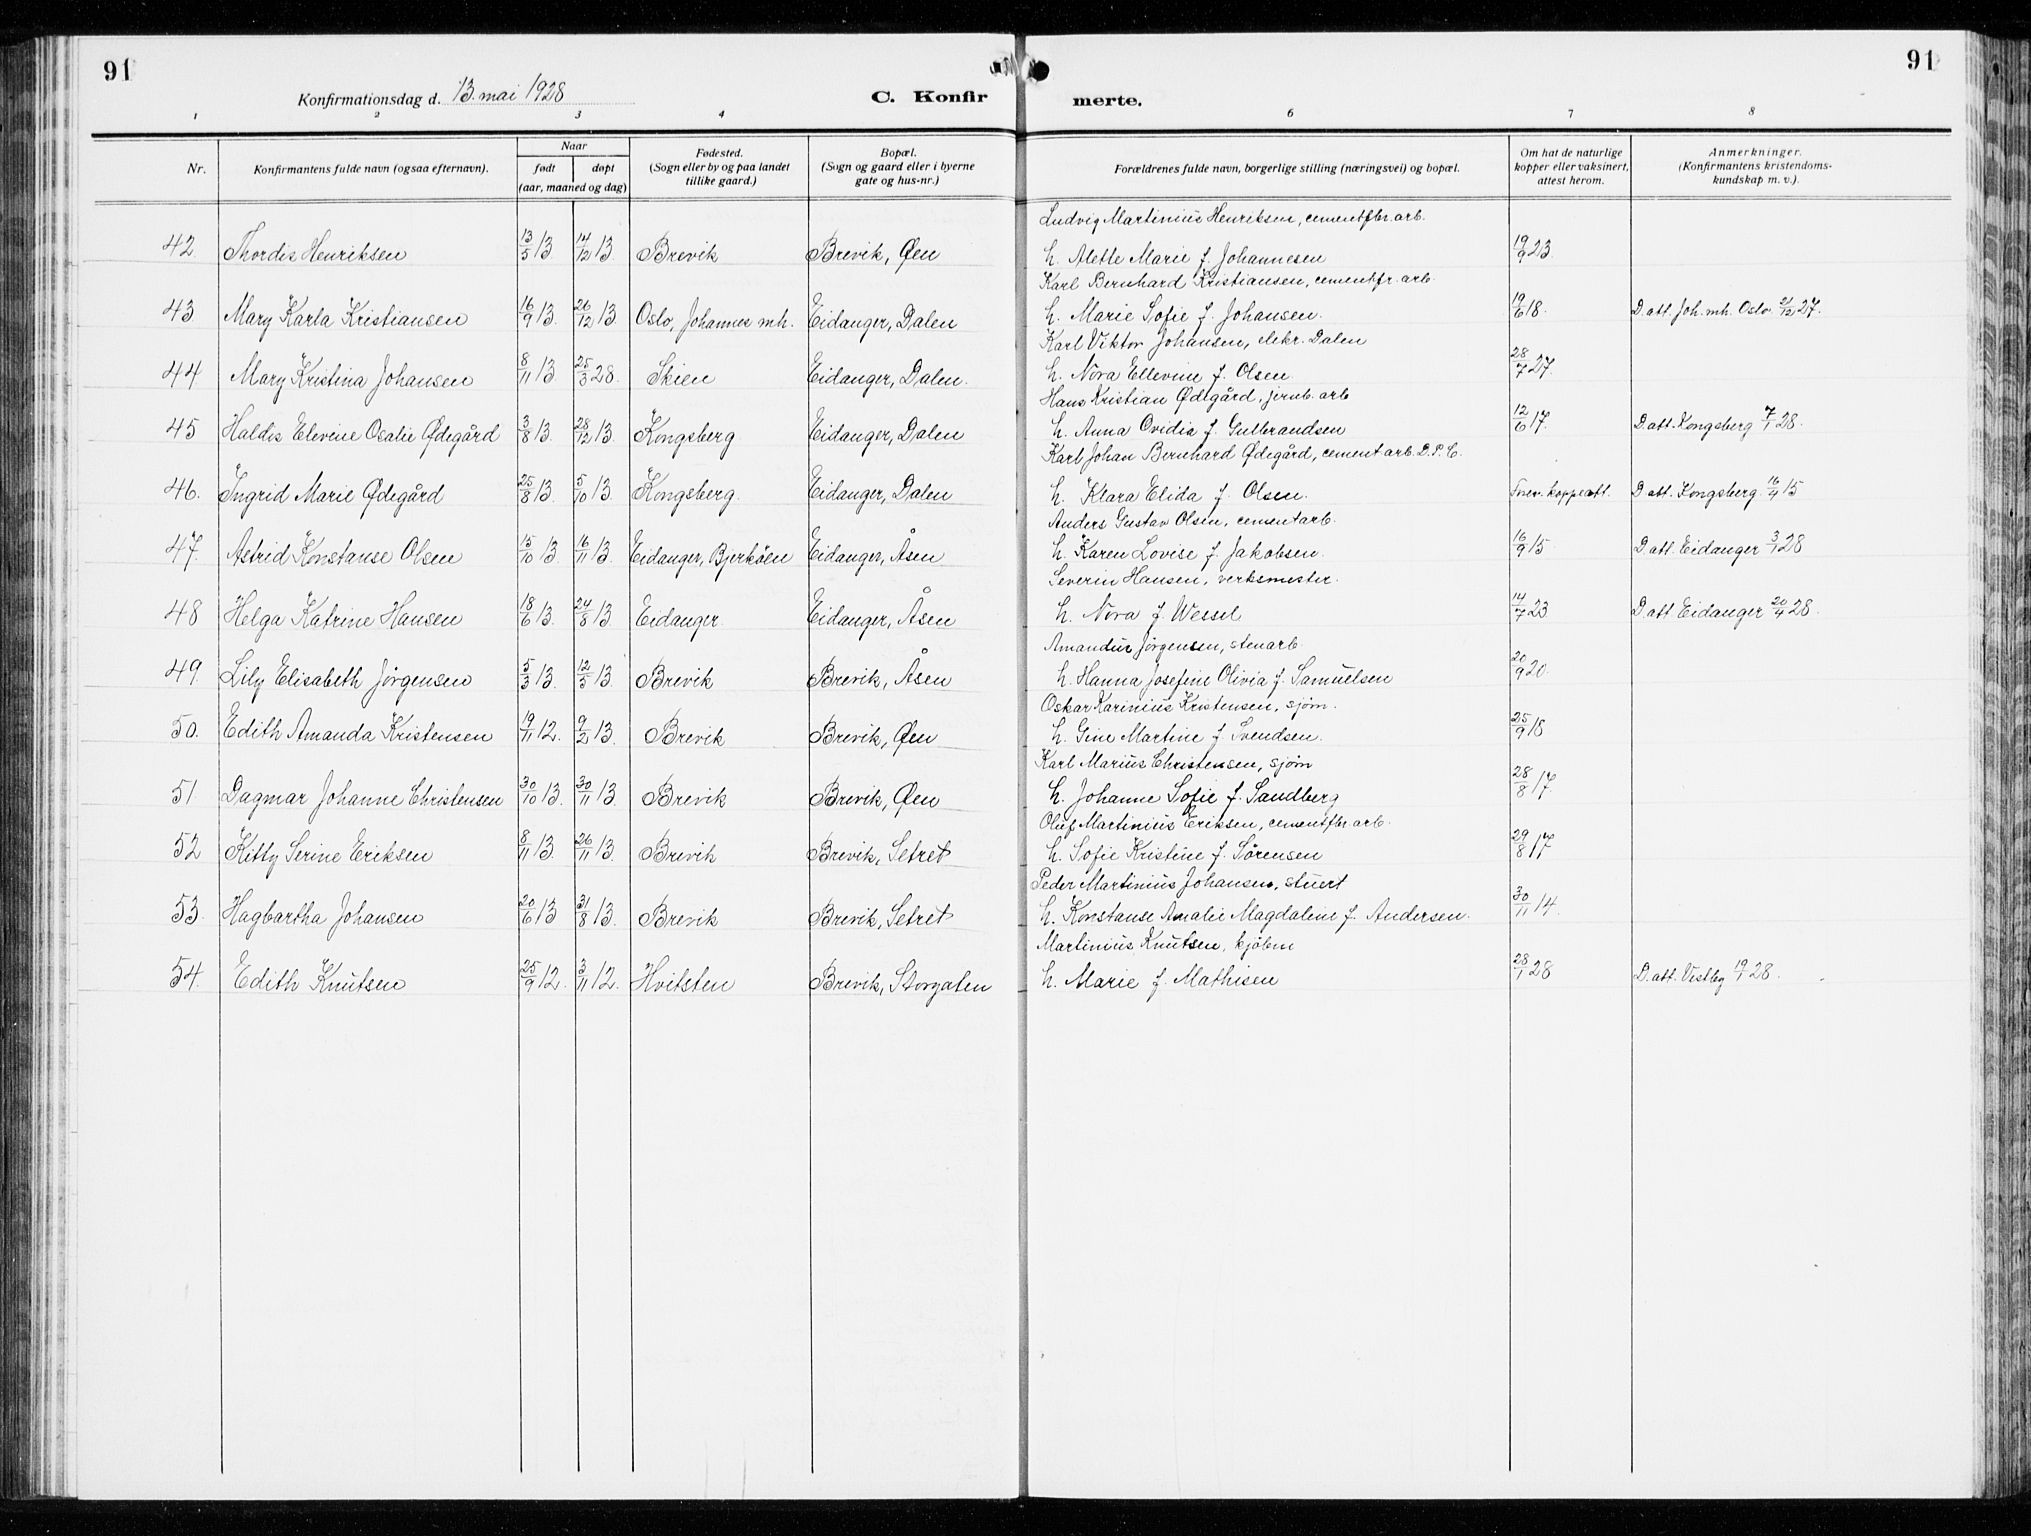 91
91
Konfirmationsdag d. 13. mai 1928
C. Konfir
merte.
1 2 3 4 6 7 8
Nr.
Konfirmantens fulde navn (ogsaa efternavn).
Naar
født døpt
(aar, maaned og dag)
Fødested.
(Sogn eller by og paa landet
tillike gaard.)
Bopæl.
(Sogn og gaard eller i byerne
gate og hus-nr.)
Forældrenes fulde navn, borgerlige stilling (næringsvei) og bopæl.
Om hat de naturlige
kopper eller vaksinert,
attest herom.
Anmerkninger.
(Konfirmantens kristendoms-
kundskap m. v.).
Ludvig Martinius Henriksen, cementfbr. arb.
42 Thordis Henriksen 13/5 13 14/12 13 Brevik Brevik, Øen h. Alette Marie f. Johannesen 19/9 23
Karl Bernhard Kristiansen, cementfr. arb.
43 Mary Karla Kristiansen 16/9 13. 26/12 13 Oslo, Johannes mh. Eidanger, Dalen h. Marie Sofie f. Johansen. 19/6 18. D. att. Joh. mh. Oslo 21/12 27.
Karl Viktor Johansen, elekr. Dalen
44. Mary Kristina Johansen 8/11 13. 25/3 28. Skien Eidanger, Dalen. h. Nora Ellevine f. Olsen 28/7 27.
Hans Kristian Ødegård, jernb. arb
45 Haldis Elevine Osalie Ødegård 3/8 13. 28/12 13 Kongsberg Eidanger, Dalen h. Anna Ovidia f. Gulbrandsen 12/6 17. D. att. Kongsberg 7/1 28.
Karl Johan Bernhard Ødegård, cementarb. D.P.C.
46. Ingrid Marie Ødegård 25/8 13. 5/10 13. Kongsberg. Eidanger, Dalen h. Klara Elida f. Olsen. Forev. koppeatt. D att. Kongsberg 16/4 15
Anders Gustav Olsen, cementarb.
47. Astrid Konstanse Olsen 15/10 13. 16/11 13. Eidanger, Bjerköen Eidanger, Åsen h. Karen Lovise f. Jakobsen. 16/9 15. D. att. Eidanger 3/1 28
Severin Hansen, verksmester.
48 Helga Katrine Hansen 18/6 13. 24/8 13 Eidanger. Eidanger, Åsen h. Nora f. Wessel 14/7 23 D. att Eidanger 20/4 28.
Amandus Jörgensen, stenarb.
49. Lily Elisabeth Jörgensen 5/3 13. 12/5 13. Brevik Brevik, Åsen h. Hanna Josefine Olivia f. Samuelsen 20/9 20.
Oskar Karinius Kristensen, sjöm.
50. Edith Amanda Kristensen 19/11 12. 9/2 13. Brevik Brevik, Øen h. Gine Martine f. Svendsen. 25/9 18
Karl Marius Christensen, sjöm
51 Dagmar Johanne Christensen 30/10 13. 30/11 13. Brevik Brevik, Øen h. Johanne Sofie f. Sandberg 28/8 17.
Oluf Martinius Eriksen, cementfbr arb.
52 Kitty Serine Eriksen 8/11 13. 26/11 13. Brevik Brevik, Setret h. Sofie Kristine f. Sörensen 29/8 17
Peder Martinius Johansen, stuert
53. Hagbartha Johansen 20/6 13 31/8 13. Brevik Brevik, Setret h. Konstanse Amalie Magdaline f. Andersen. 30/11 14.
Martinius Knutsen, kjöbm
54. Edith Knutsen 25/9 12. 3/11 12. Hvitsten Brevik, Storgaten h. Marie f. Mathisen 28/1 28 D. att. Vestby 19/1 28.